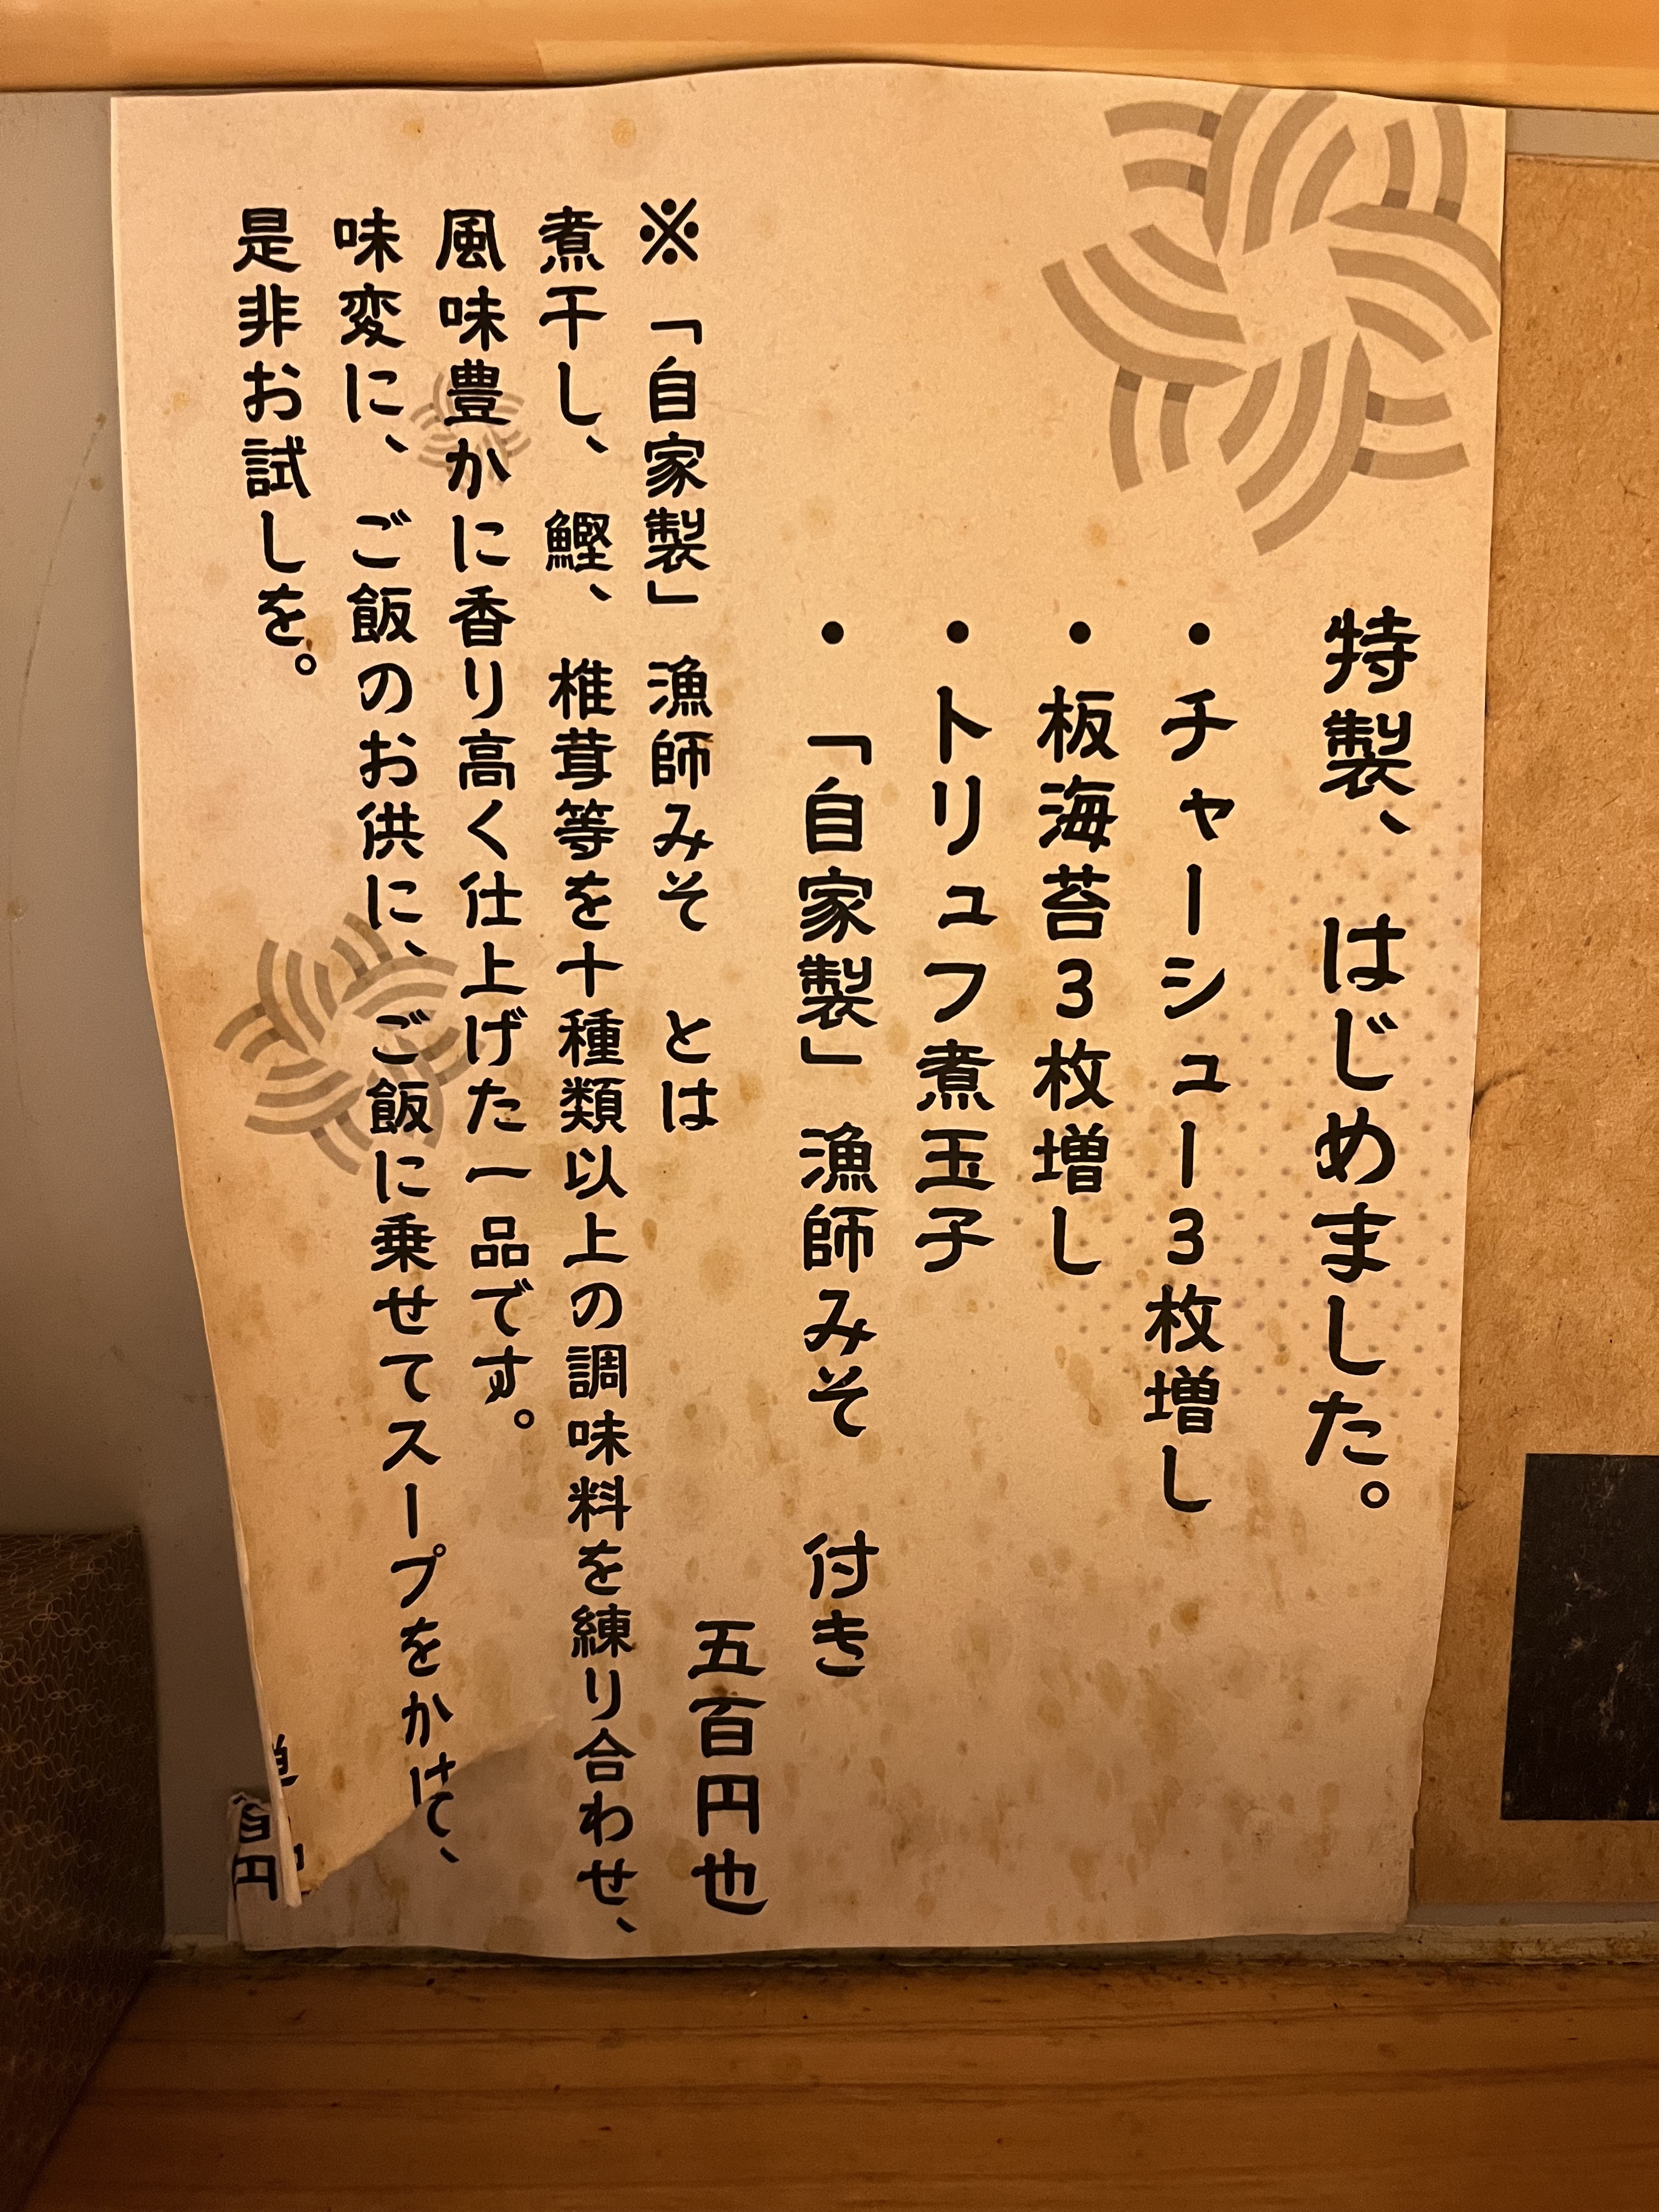 特製、はじめました。
・チャーシュー3枚増し
・板海苔3枚増し
・トリュフ煮玉子
・「自家製」漁師みそ 付き
五百円也
※「自家製」漁師みそ とは
煮干し、鰹、椎茸等を十種類以上の調味料を練り合わせ、
風味豊かに香り高く仕上げた一品です。
味変に、ご飯のお供に、ご飯に乗せてスープをかけて、
是非お試しを。
百円